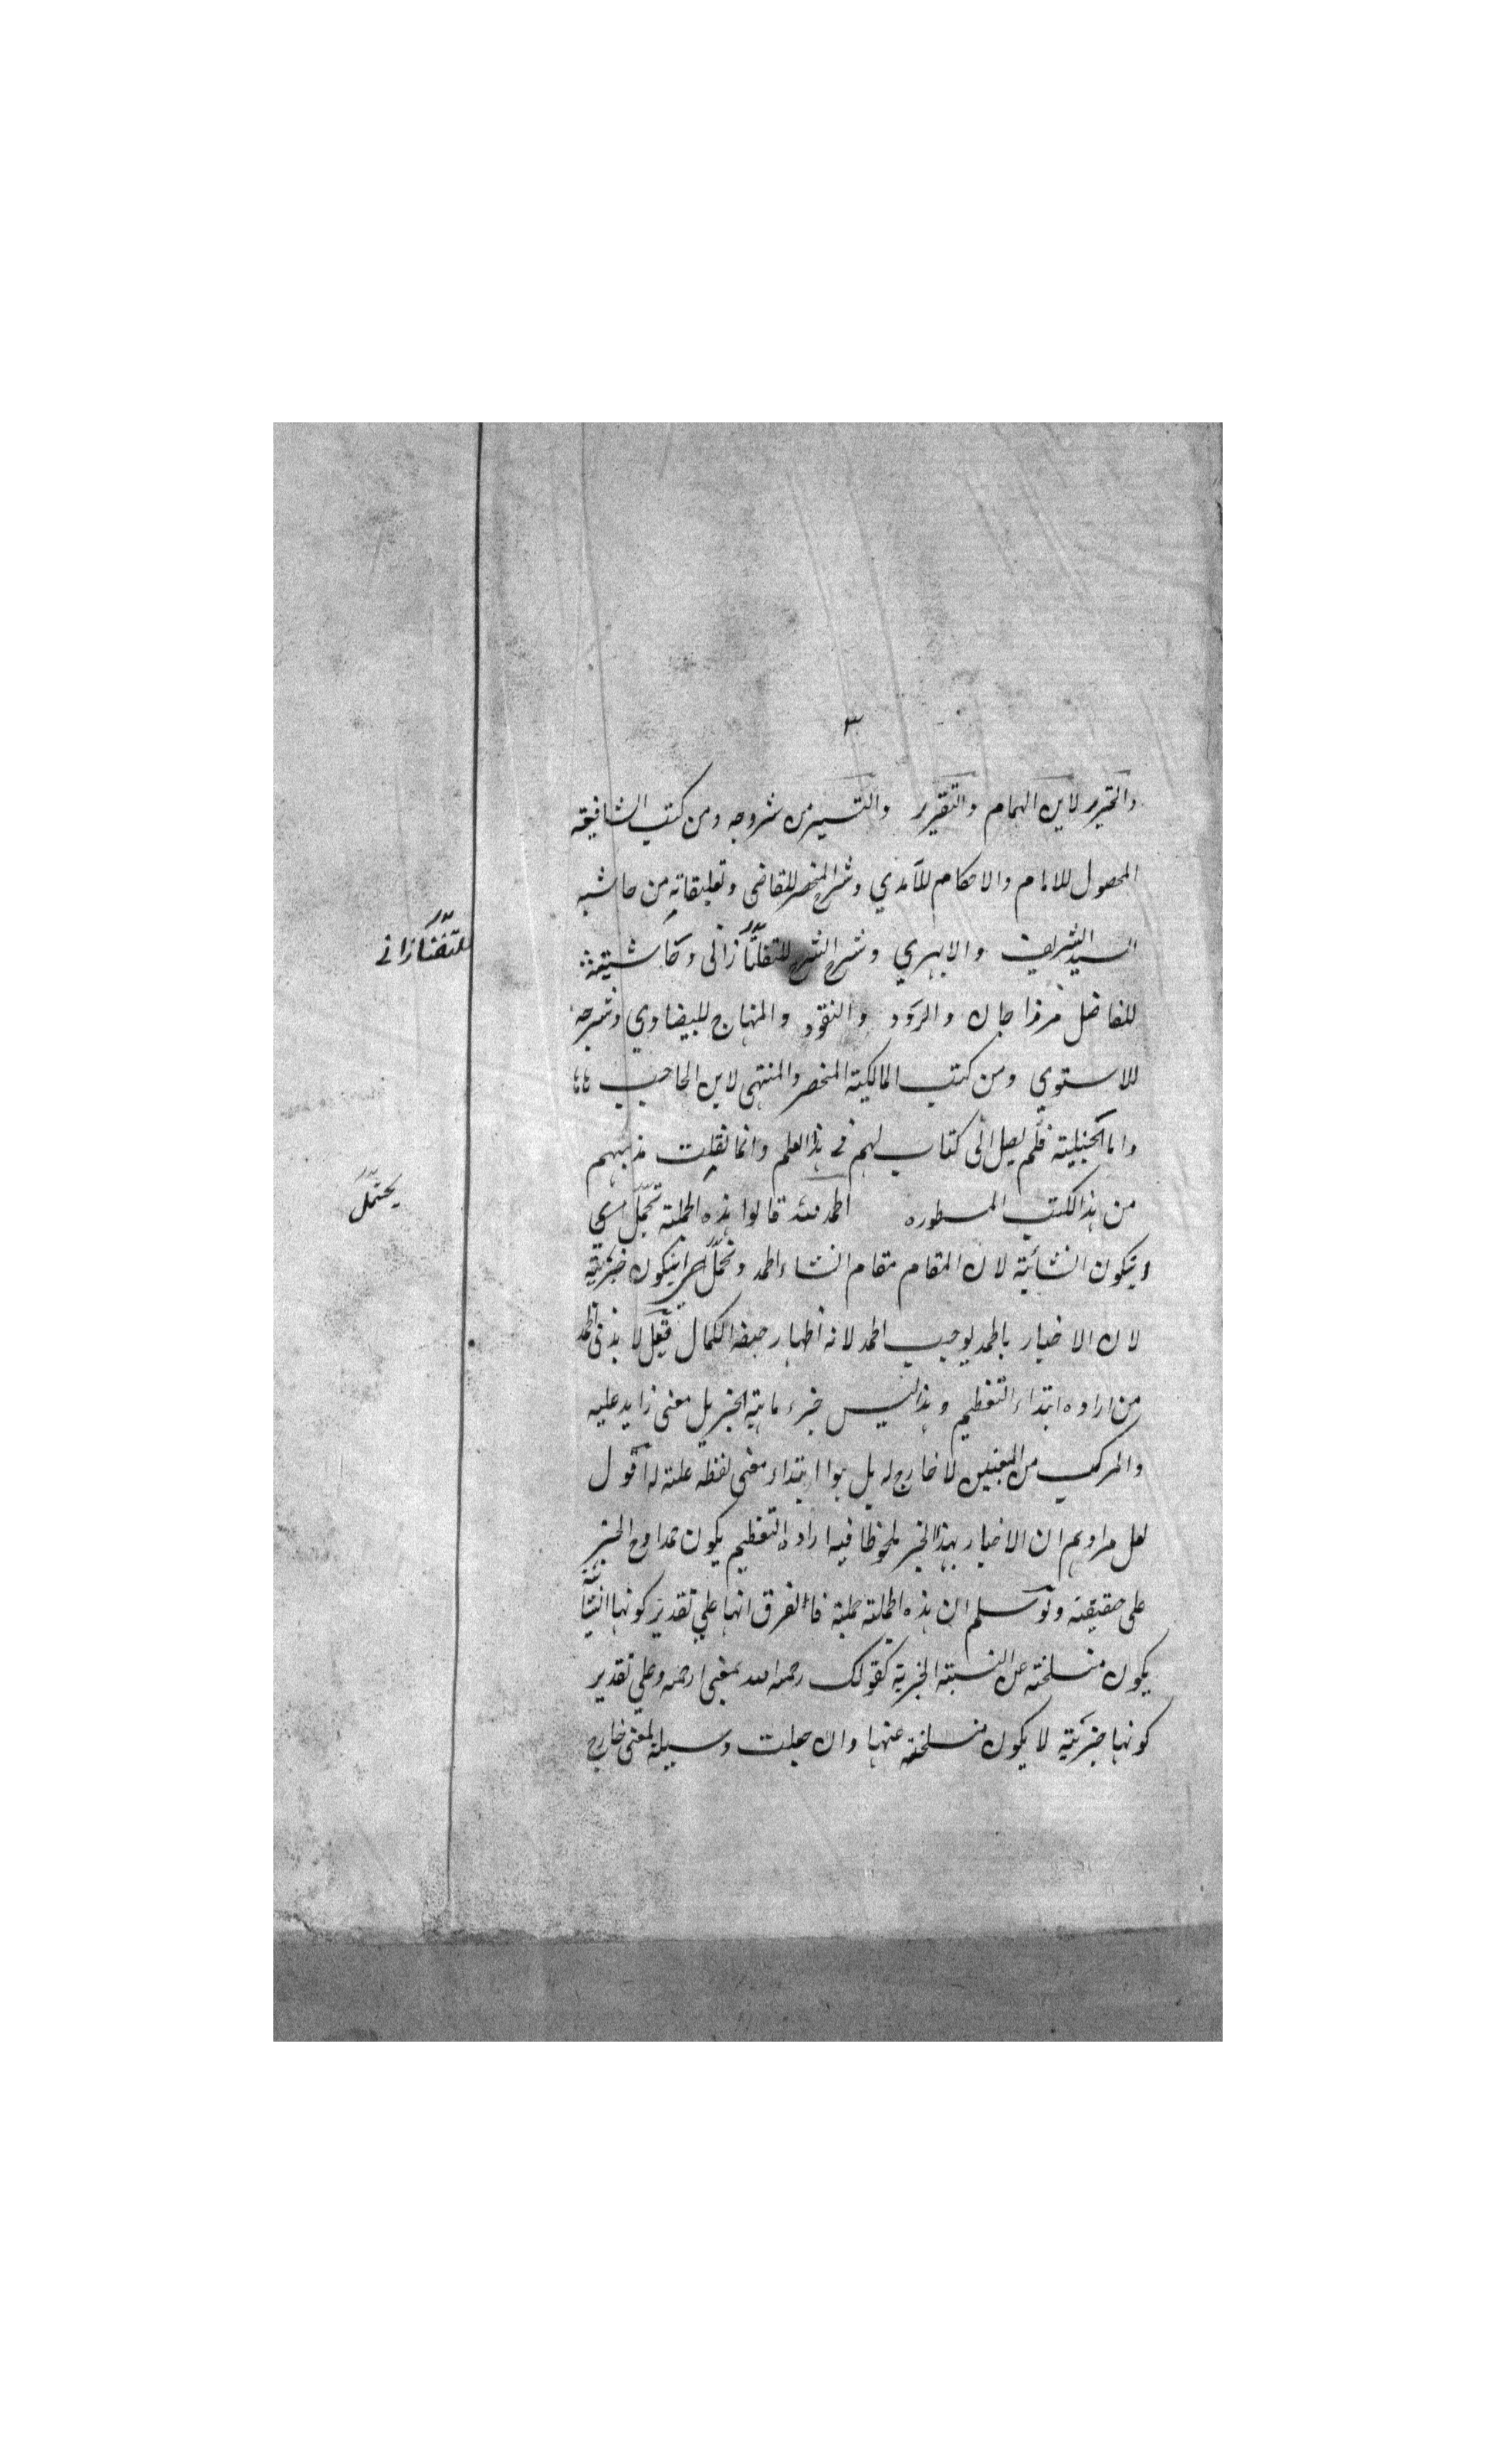 ٣
والتحرير لابن الهمام والتقرير والتيسير من شروحه ومن كتب الشافعية
المحصول للامام والاحكام للآمدي وشرح المختصر للقاضى وتعليقاته من حاشية
السيد الشريف والابهري وشرح الشرح للتفتازانى وحاشيته
للتفتازانے
للفاضل مرزا جان والردود والنقود والمنهاج للبيضاوي وشرحه
للاسنوي ومن كتب المالكية المختصر والمنتهى لابن الحاجب
واما الحنبلية فلم يصل الى كتاب لهم فے هذا العلم وانما نقلت مذهبهم
من هذه الكتب المسطوره الحمد لله قالوا هذه الجملة تحتمل
يحتمل
ان يكون انشائية لان المقام مقام انشاء الحمد وتحتمل ان يكون خبرية
لان الاخبار بالحمد يوجب الحمد لانه اظهار صفة الكمال فقيل لا بد فى الحمد
من اراده ابتداء التعظيم وهذا ليس جزء ماهية الخبر بل معنى زايد عليه
والمركب من المعنيين لا خارج له بل هو ابتداء معنى لفظه علة له اقول
لعل مرادهم ان الاخبار بهذا الخبر ملحوظا فيه ارادة التعظيم يكون حمدا والخبر
على حقيقته ولو سلم ان هذه الجملة فالفرق انها علي تقدير كونها انشائية
يكون منسلخة عن النسبة الخبرية كقولك رحمه الله بمعنى ارحمه وعلي تقدير
كونها خبرية لا يكون منسلخة عنها وان جعلت وسيلة لمعنى خارج